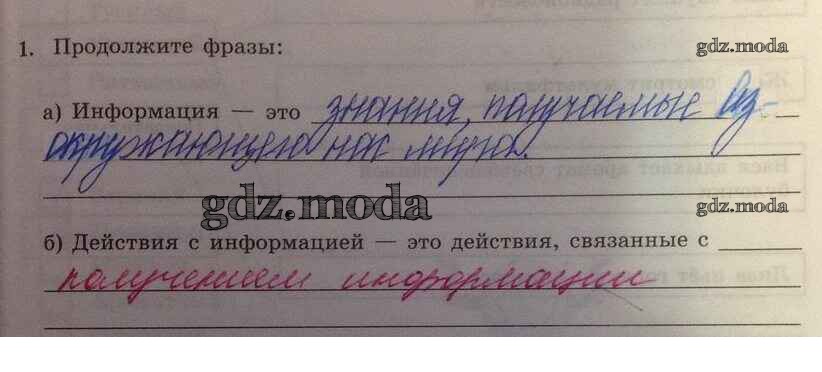 1. Продолжите фразы:
gdz.moda
а) Информация — это знания, получаемые из
окружающего нас мира.
gdz.moda
gdz.moda
б) Действия с информацией — это действия, связанные с
получением информации